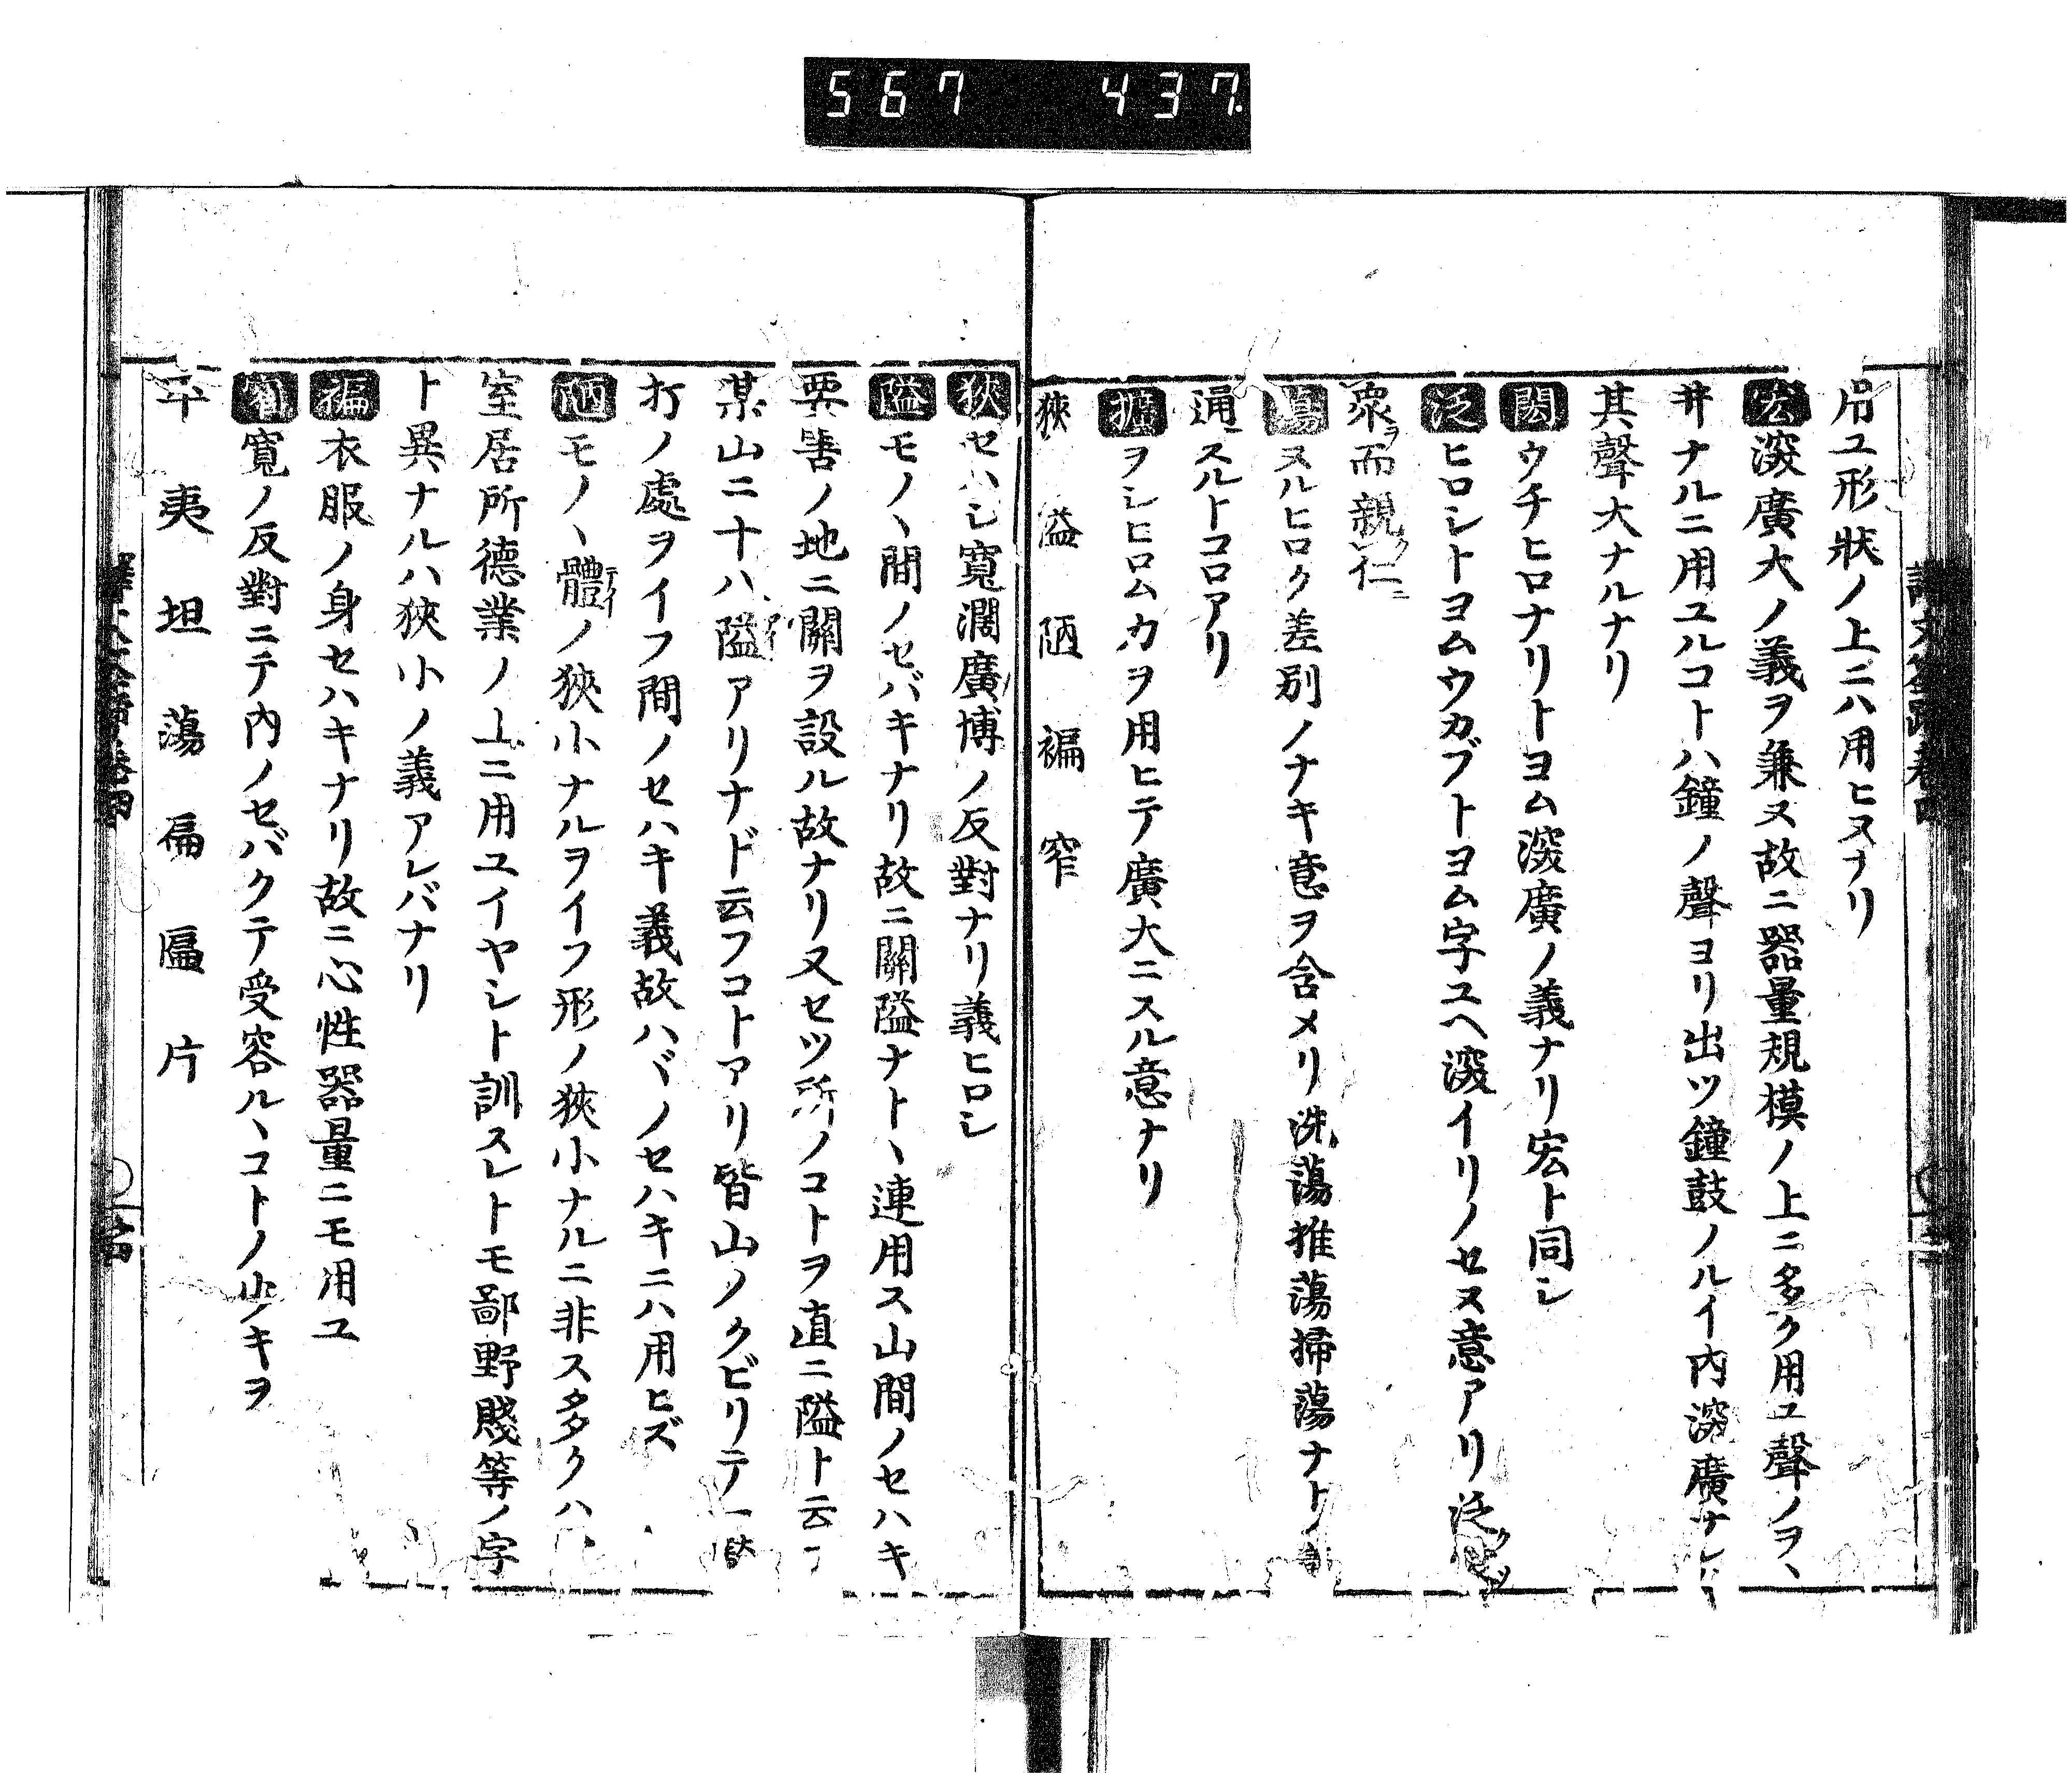 567 437
用ユ形狀ノ上ニハ用ヒヌナリ
宏 深廣大ノ義ヲ兼ヌ故ニ器量規模ノ上ニ多ク用ユ聲ノヲヽ
井ナルニ用ユルコトハ鐘ノ聲ヨリ出ツ鐘鼓ノルイ内深廣ナレバ
其聲大ナルナリ
閎 ウチヒロナリトヨム深廣ノ義ナリ宏ト同シ
泛 ヒロシトヨムウカブトヨム字ユヘ深イリノセヌ意アリ泛
衆ヲ而親クレ仁ニ
蕩 スルヒロク差別ノナキ意ヲ含メリ洗蕩推蕩掃蕩ナト
通スルトコロアリ
擴 ヲシヒロムカヲ用ヒテ廣大ニスル意ナリ
狹 隘 陋 褊 窄
狹 セハシ寬濶廣博ノ反對ナリ義ヒロシ
隘 モノヽ間ノセバキナリ故ニ關隘ナトヽ連用ス山間ノセハキ
要害ノ地ニ關ヲ設ル故ナリ又セツ所ノコトヲ直ニ隘ト云
某山ニ十八隘アリナド云フコトアリ皆山ノクビリテ一
打ノ處ヲイフ間ノセハキ義故ハヾノセハキニハ用ヒズ
陋 モノヽ體テイノ狹小ナルヲイフ形ノ狹小ナルニ非ス多クハ
室居所德業ノ上ニ用ユイヤシト訓スレトモ鄙野賤等ノ字
ト異ナルハ狹小ノ義アレバナリ
褊 衣服ノ身セハキナリ故ニ心性器量ニモ用ユ
窄 寬ノ反對ニテ内ノセバクテ受容ルヽコトノ少ノキヲ
平 夷 坦 蕩 扁 匾 片